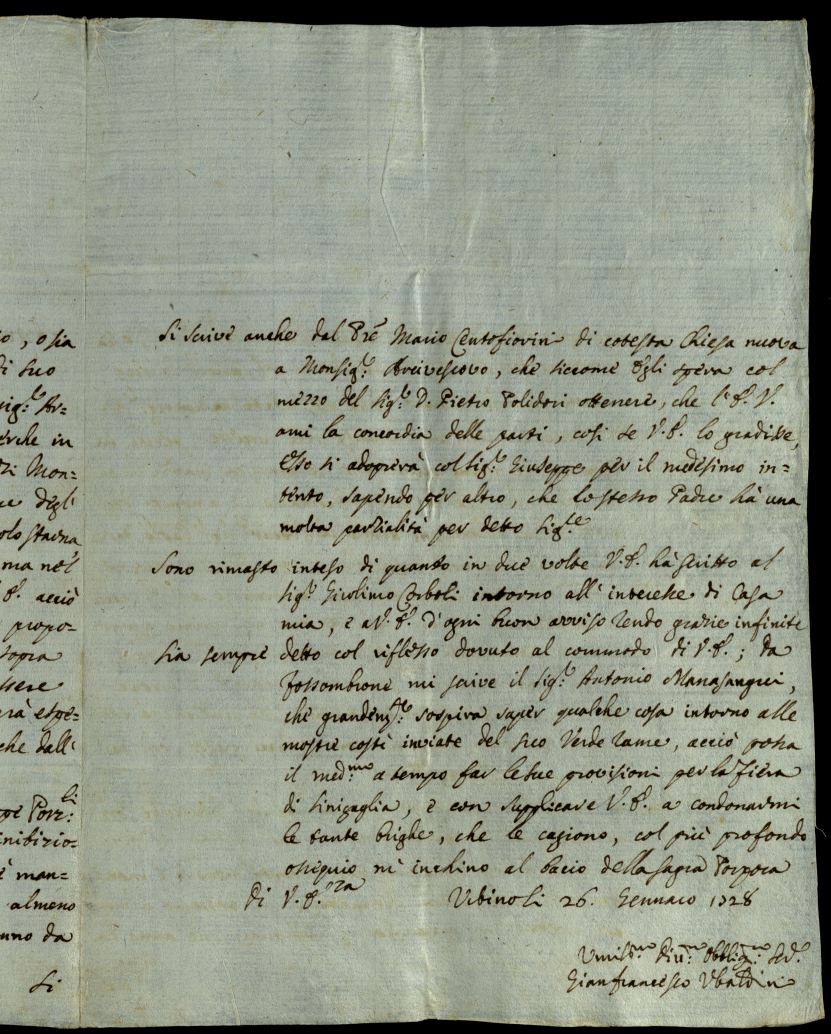 o, o sia
di suo
sig.r Ar=
erche in
di Mon=
ue degl'
olo stauna
ma nel
E. acciò
propo=
sopra
ssere
erà espe=
che dall'
Porz:li
inibizio=
è man=
almeno
uno da
Si
Si scrive anche dal Prè Mario Centofiorini di cotesta Chiesa nuova
a Monsig.r Arcivescovo, che siccome Egli spera col
mezzo del Sig.r D. Pietro Polidori ottenere, che l'E.V.
ami la concordia delle parti, così se V.E. lo gradisse,
Esso si adoprerà col Sig.r Giuseppe per il medesimo in=
tento, sapendo per altro, che lo stesso Padre hà una
molta parzialità per detto Sig.re
Sono rimasto inteso di quanto in due volte V.E. hà scritto al
Sig.r Girolimo Corboli intorno all'interesse di Casa
mia, e a V.E. d'ogni buon avviso rendo grazie infinite
Sia sempre detto col riflesso dovuto al commodo di V.E.; da
Fossombrone mi scrive il Sig.r Antonio Manasangui,
che grandem.te sospira saper qualche cosa intorno alle
mostre costì inviate del suo Verde rame, acciò possa
il med.mo a tempo far le sue provisioni per la Fiera
di Sinigaglia, e con supplicare V.E. a condonarmi
le tante brighe, che le cagiono, col più profondo
ossequio m'inchino al bacio della Sagra Porpora
di V.E.za Urbino li 26. Gennaro 1728
Umil.mo Div.mo Obblig.mo Ser.
Gianfrancesco Ubaldini